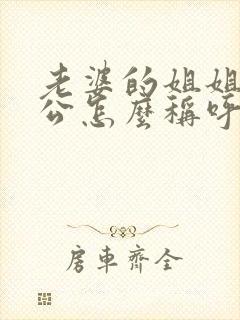 老婆的姐姐
公怎麼稱呼
房車齊全